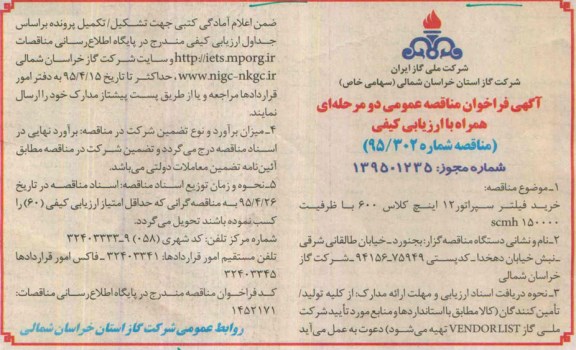 شرکت ملی گاز ایران
شرکت گاز استان خراسان شمالی (سهامی خاص)
آگهی فراخوان مناقصه عمومی دو مرحله‌ای
همراه با ارزیابی کیفی
(مناقصه شماره ۹۵/۳۰۲)
شماره مجوز: ۱۳۹۵۰۱۲۳۵
۱ـ موضوع مناقصه:
خرید فیلتر سپراتور ۱۲ اینچ کلاس ۶۰۰ با ظرفیت
۱۵۰۰۰۰ scmh
۲ـ نام و نشانی دستگاه مناقصه‌گزار: بجنورد ـ خیابان طالقانی شرقی
ـ نبش خیابان دهخدا ـ کدپستی ۷۵۹۴۹ـ۹۴۱۵۶ ـ شرکت گاز
خراسان شمالی
۳ـ نحوه دریافت اسناد ارزیابی و مهلت ارائه مدارک: از کلیه تولید/
تأمین‌کنندگان (کالا مطابق با استانداردها و منابع مورد تأیید شرکت
ملی گاز VENDORLIST تهیه می‌شود) دعوت به عمل می‌آید
ضمن اعلام آمادگی کتبی جهت تشکیل/ تکمیل پرونده براساس
جداول ارزیابی کیفی مندرج در پایگاه اطلاع‌رسانی مناقصات
http://iets.mporg.ir و سایت شرکت گاز خراسان شمالی
www.nigc-nkgc.ir، حداکثر تا تاریخ ۹۵/۴/۱۵ به دفتر امور
قراردادها مراجعه و یا از طریق پست پیشتاز مدارک خود را ارسال
نمایند.
۴ـ میزان برآورد و نوع تضمین شرکت در مناقصه: برآورد نهایی در
اسناد مناقصه درج می‌گردد و تضمین شرکت در مناقصه مطابق
آئین‌نامه تضمین معاملات دولتی می‌باشد.
۵ـ نحوه و زمان توزیع اسناد مناقصه: اسناد مناقصه در تاریخ
۹۵/۴/۲۶ به مناقصه‌گرانی که حداقل امتیاز ارزیابی کیفی (۶۰) را
کسب نموده باشند تحویل می‌گردد.
شماره مرکز تلفن: کد شهری (۰۵۸) ۹ـ۳۲۴۰۳۳۳۳
تلفن مستقیم امور قراردادها: ۳۲۴۰۳۳۴۱ ـ فاکس امور قراردادها
۳۲۴۰۳۳۴۵
کد فراخوان مناقصه مندرج در پایگاه اطلاع‌رسانی مناقصات:
۱۴۵۲۱۷۱
روابط عمومی شرکت گاز استان خراسان شمالی